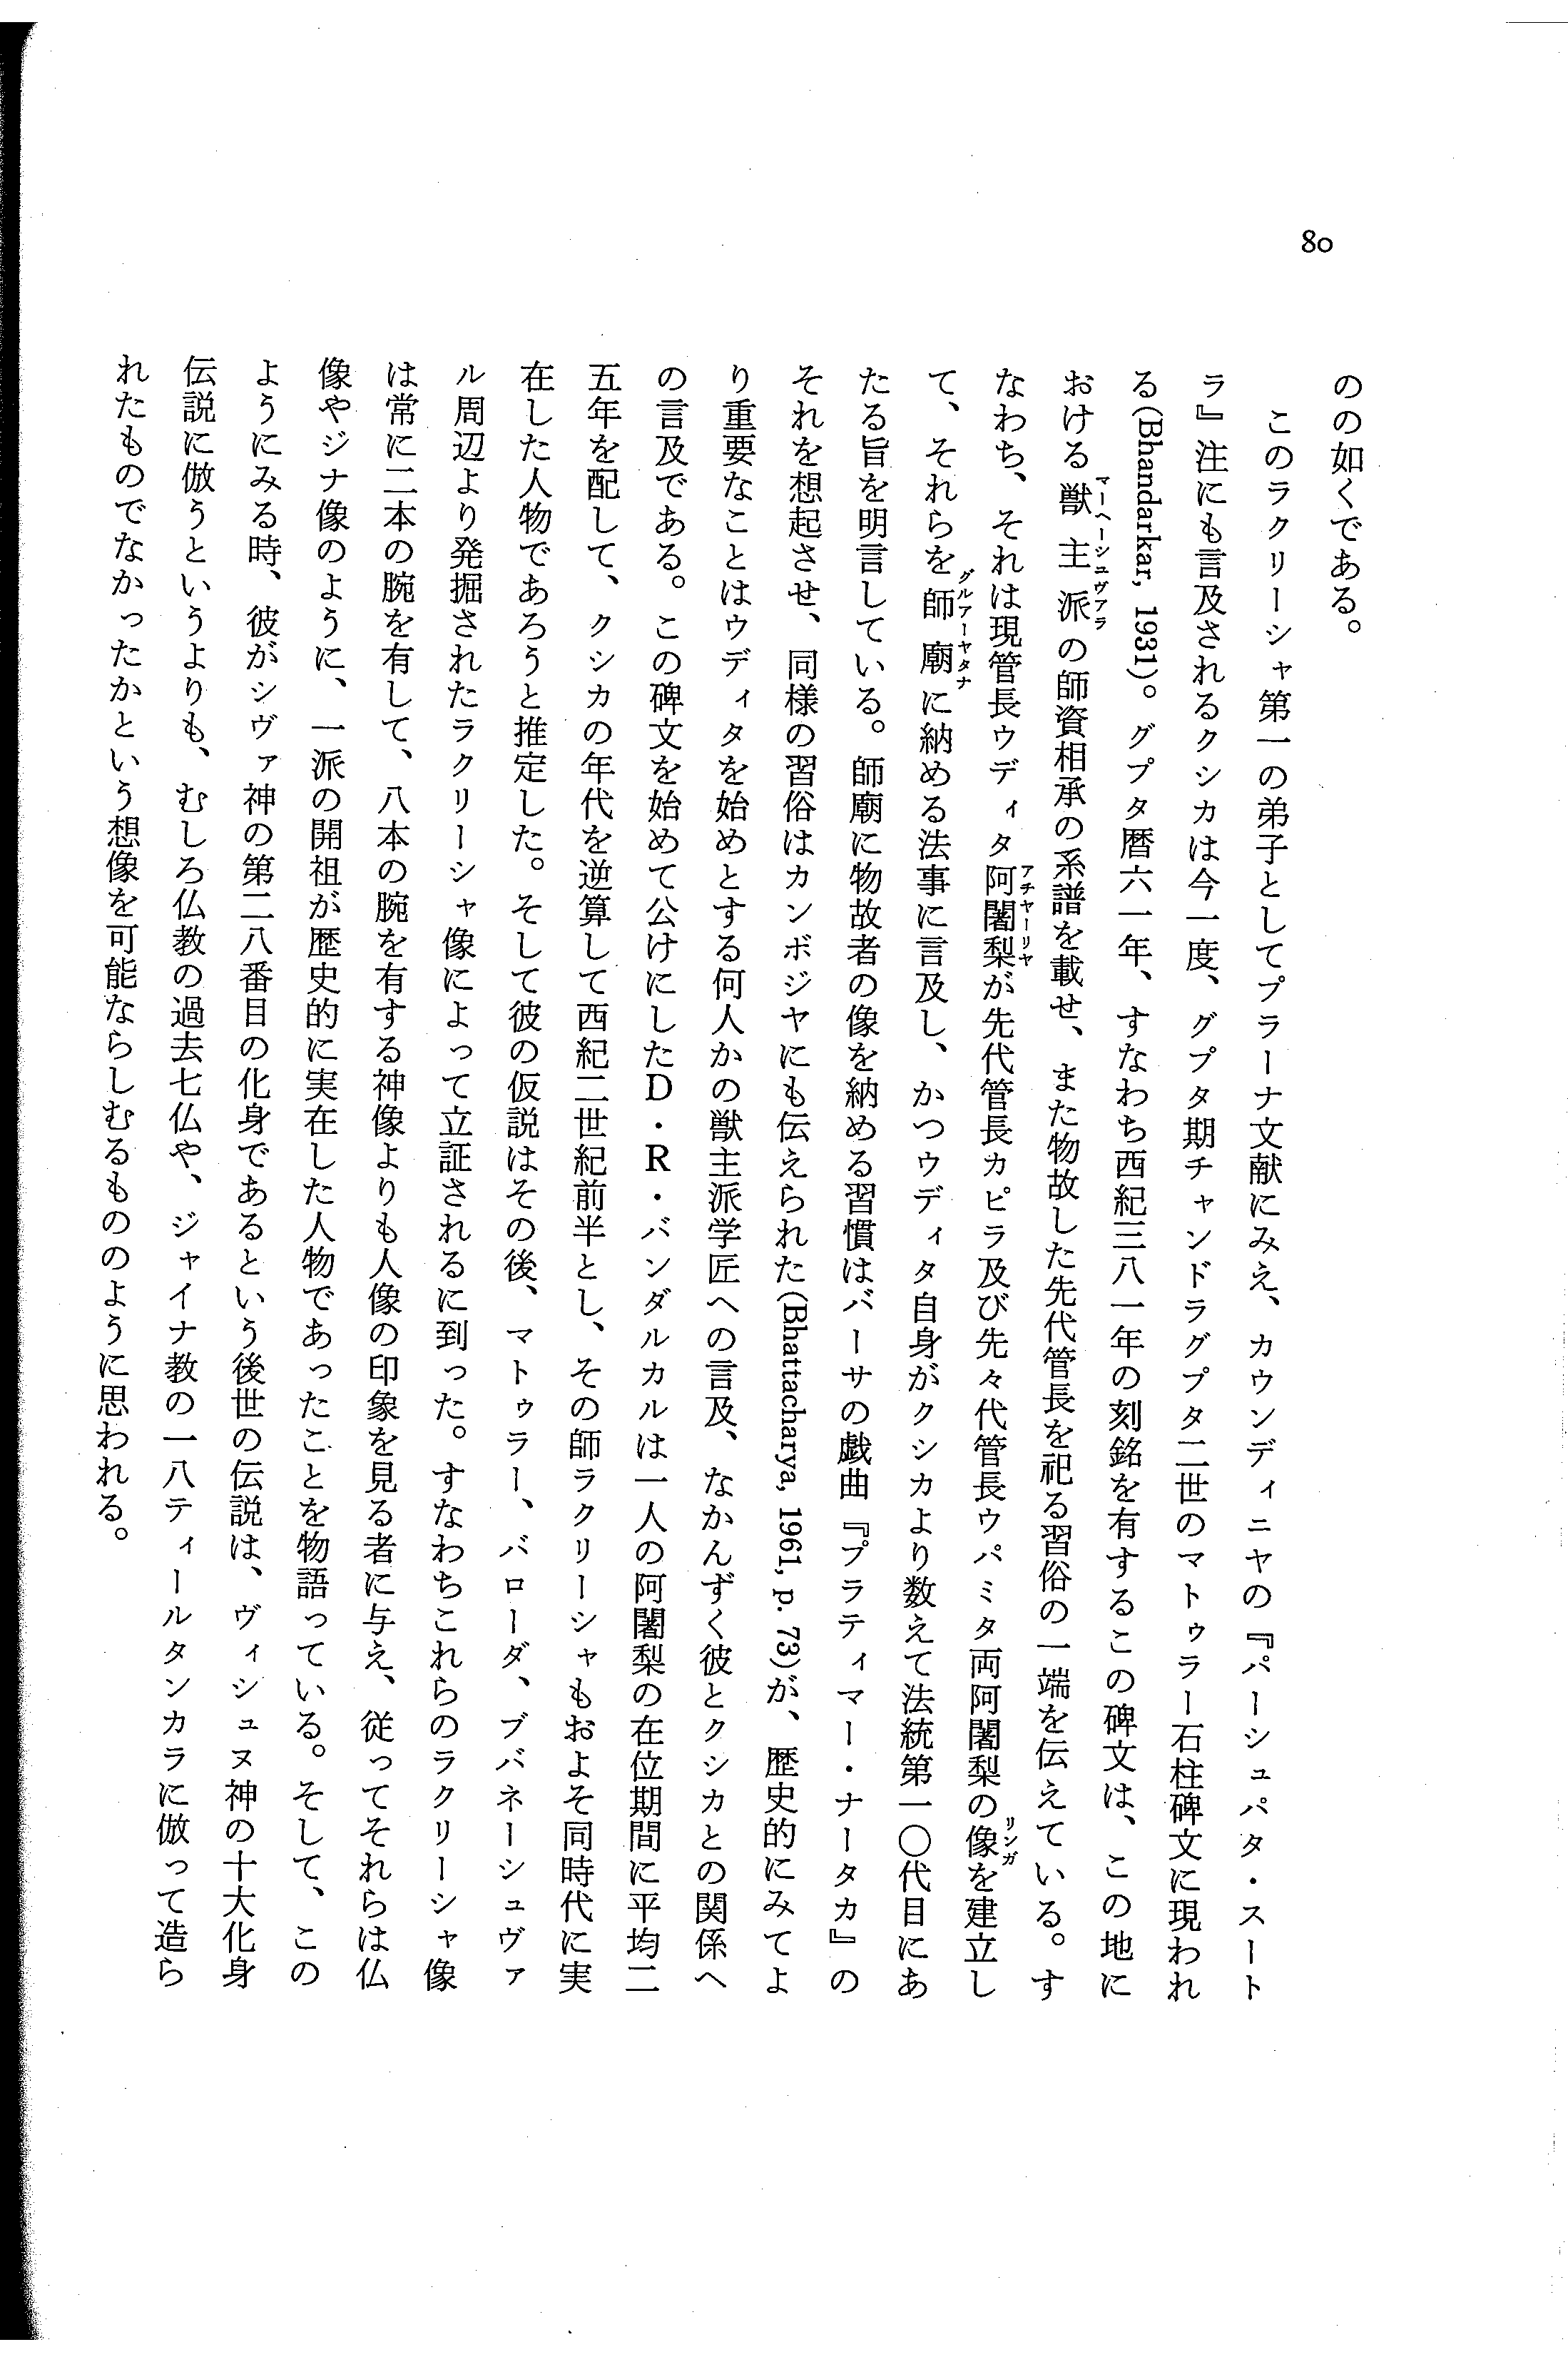 80
のの如くである。
このラクリーシャ第一の弟子としてプラーナ文献にみえ、カウンディニヤの『パーシュパタ・スート
ラ』注にも言及されるクシカは今一度、グプタ期チャンドラグプタ二世のマトゥラー石柱碑文に現われ
る(Bhandarkar, 1931)。グプタ暦六一年、すなわち西紀三八一年の刻銘を有するこの碑文は、この地に
おける獣主派の師資相承の系譜を載せ、また物故した先代管長を祀る習俗の一端を伝えている。す
マーヘーシュヴァラ
なわち、それは現管長ウディタ阿闍梨が先代管長カピラ及び先々代管長ウパミタ両阿闍梨の像を建立し
アチャーリヤ
リンガ
て、それらを師廟に納める法事に言及し、かつウディタ自身がクシカより数えて法統第一〇代目にあ
グルアーヤタナ
たる旨を明言している。師廟に物故者の像を納める習慣はバーサの戯曲『プラティマー・ナータカ』の
それを想起させ、同様の習俗はカンボジヤにも伝えられた(Bhattacharya, 1961, p. 73)が、歴史的にみてよ
り重要なことはウディタを始めとする何人かの獣主派学匠への言及、なかんずく彼とクシカとの関係へ
の言及である。この碑文を始めて公けにしたD・R・バンダルカルは一人の阿闍梨の在位期間に平均二
五年を配して、クシカの年代を逆算して西紀二世紀前半とし、その師ラクリーシャもおよそ同時代に実
在した人物であろうと推定した。そして彼の仮説はその後、マトゥラー、バローダ、ブバネーシュヴァ
ル周辺より発掘されたラクリーシャ像によって立証されるに到った。すなわちこれらのラクリーシャ像
は常に二本の腕を有して、八本の腕を有する神像よりも人像の印象を見る者に与え、従ってそれらは仏
像やジナ像のように、一派の開祖が歴史的に実在した人物であったことを物語っている。そして、この
ようにみる時、彼がシヴァ神の第二八番目の化身であるという後世の伝説は、ヴィシュヌ神の十大化身
伝説に倣うというよりも、むしろ仏教の過去七仏や、ジャイナ教の一八ティールタンカラに倣って造ら
れたものでなかったかという想像を可能ならしむるもののように思われる。